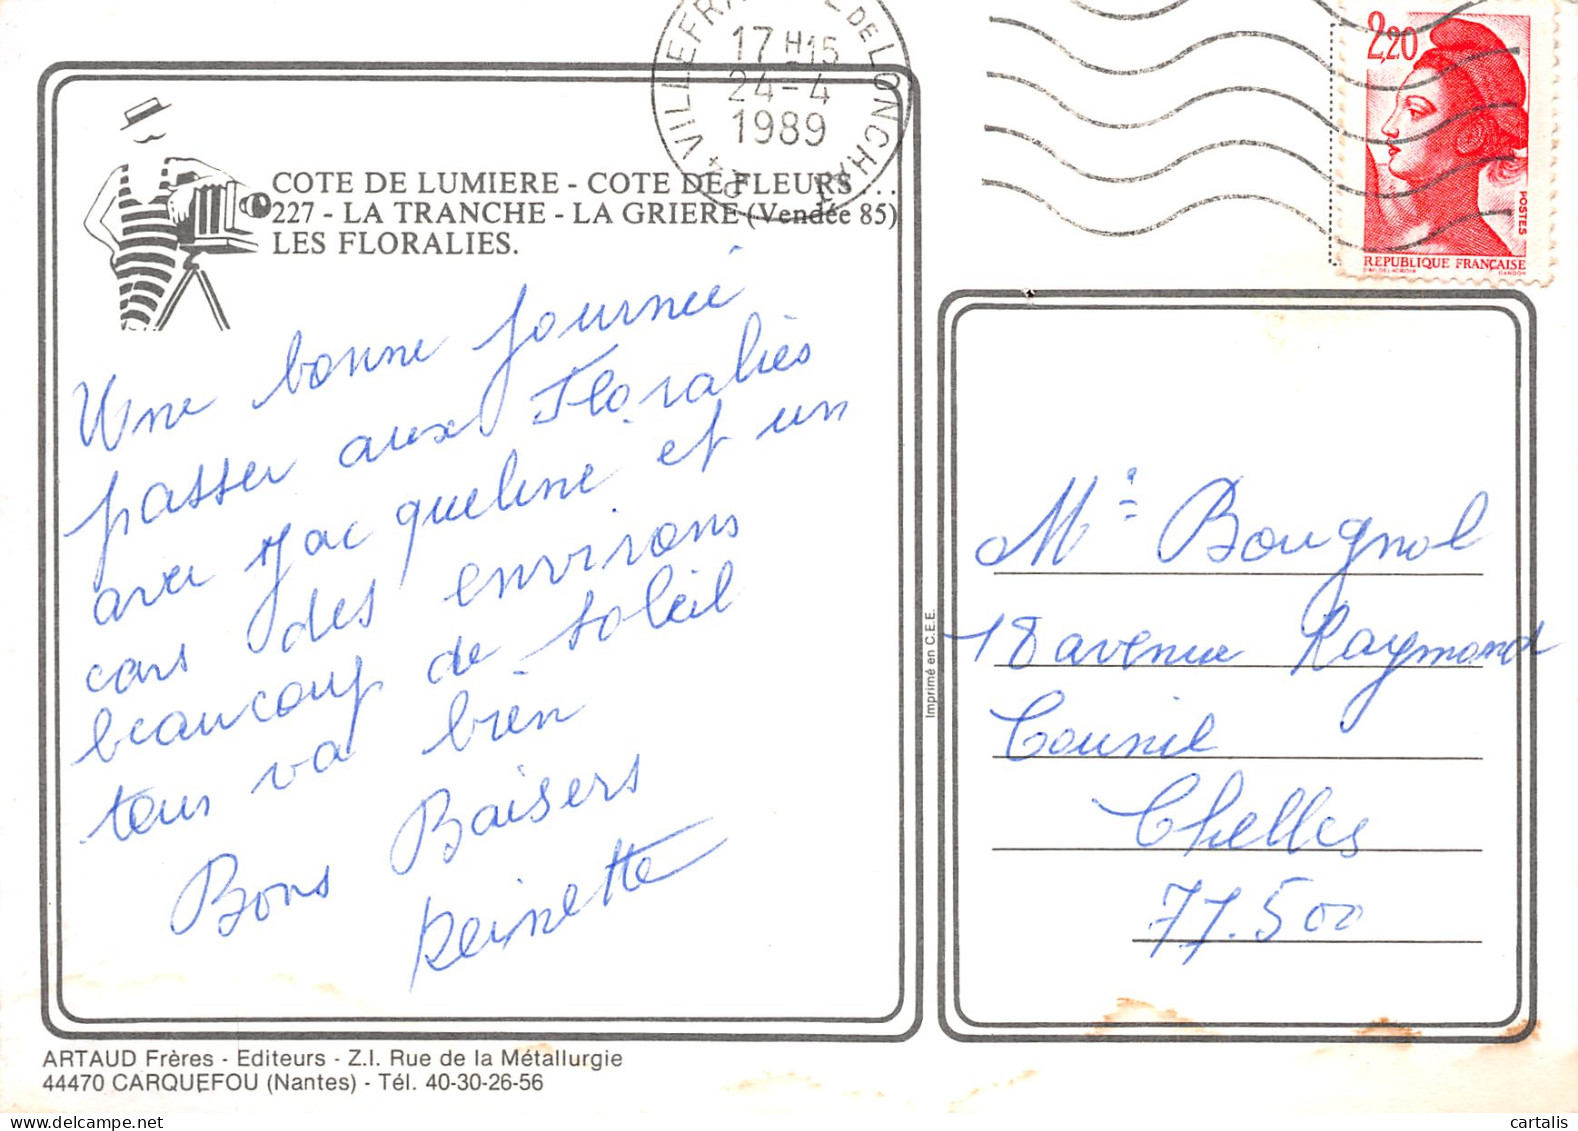 VILLEFRANCHE DE LONCHAT
17 H 15
24 - 4
1989
2,20
POSTES
REPUBLIQUE FRANÇAISE
GANDON
COTE DE LUMIERE - COTE DE FLEURS...
227 - LA TRANCHE - LA GRIERE (Vendée 85)
LES FLORALIES.
Une bonne journée
passer aux Floralies
avec Jacqueline et un
cars des environs
beaucoup de soleil
tous va bien
Bons Baisers
Reinette
Imprimé en C.E.E.
Bougnol
18 avenue Raymond
Chelles
77.500
ARTAUD Frères - Editeurs - Z.I. Rue de la Métallurgie
44470 CARQUEFOU (Nantes) - Tél. 40-30-26-56
cartalis